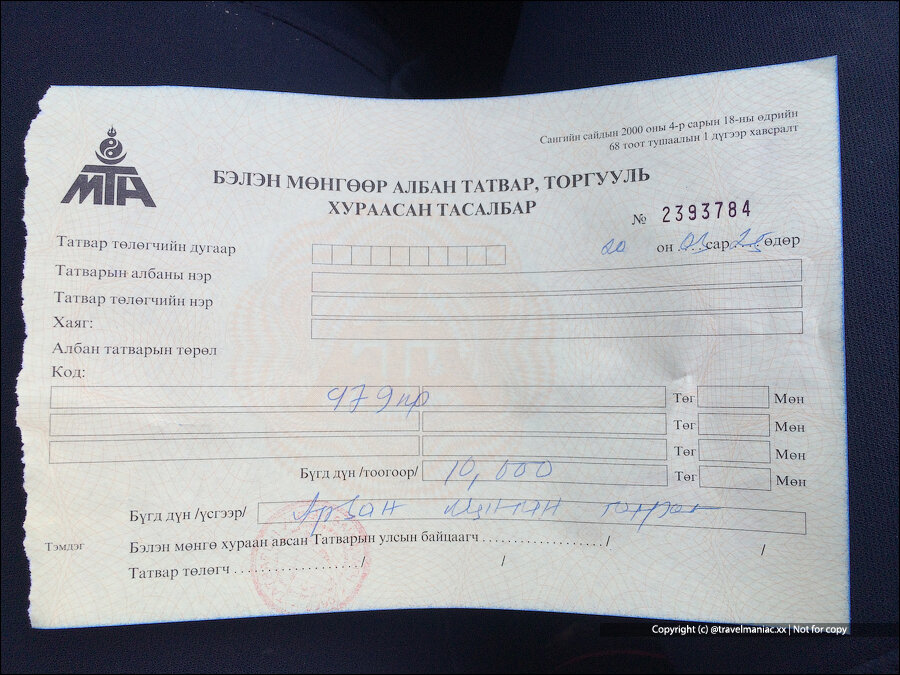 Сангийн сайдын 2000 оны 4-р сарын 18-ны өдрийн
68 тоот тушаалын 1 дүгээр хавсралт
МТА
БЭЛЭН МӨНГӨӨР АЛБАН ТАТВАР, ТОРГУУЛЬ
ХУРААСАН ТАСАЛБАР
№ 2393784
Татвар төлөгчийн дугаар
20 он 03 сар 25 өдөр
Татварын албаны нэр
Татвар төлөгчийн нэр
Хаяг:
Албан татварын төрөл
Код:
Төг Мөн
Төг Мөн
Төг Мөн
Бүгд дүн /тоогоор/ 10,000 Төг Мөн
Бүгд дүн /үсгээр/ Арван мянган төгрөг
Тэмдэг
Бэлэн мөнгө хураан авсан Татварын улсын байцаагч ................../ /
Татвар төлөгч .................../ /
Copyright (c) @travelmaniac.xx | Not for copy